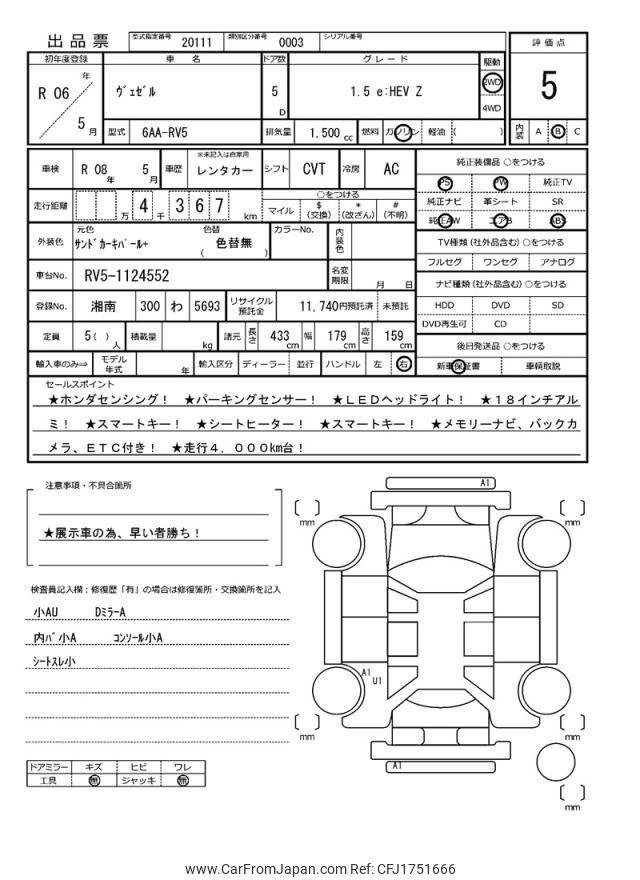 出品票 型式指定番号 20111 類別区分番号 0003 シリアル番号
評価点
5
内装 A B C
初年度登録 車名 ドア数 グレード 駆動
R 06 年 5 月
ヴェゼル 5 D 1.5 e:HEV Z 2WD
4WD
型式 6AA-RV5 排気量 1.500 cc 燃料 ガソリン 軽油 ( )
車検 R 08 年 5 月 車歴 ※未記入は自家用 レンタカー シフト CVT 冷房 AC
走行距離 万 4 千 3 6 7 km
○をつける
マイル $(交換) *(改ざん) #(不明)
外装色 元色 サンドカーキパール+ 色替 ( 色替無 ) カラーNo. 内装色
車台No. RV5-1124552 名変期限 月 日
登録No. 湘南 300 わ 5693 リサイクル預託金 11,740円預託済 未預託
定員 5( )人 積載量 kg 諸元 長さ 433 cm 幅 179 cm 高さ 159 cm
輸入車のみ⇒ モデル年式 年 輸入区分 ディーラー 並行 ハンドル 左 右
純正装備品 ○をつける
PS PW 純正TV
純正ナビ 革シート SR
純正AW エアB ABS
TV種類(社外品含む)○をつける
フルセグ ワンセグ アナログ
ナビ種類(社外品含む)○をつける
HDD DVD SD
DVD再生可 CD
後日発送品 ○をつける
新車保証書 車輌取説
セールスポイント
★ホンダセンシング! ★パーキングセンサー! ★LEDヘッドライト! ★18インチアル
ミ! ★スマートキー! ★シートヒーター! ★スマートキー! ★メモリーナビ、バックカ
メラ、ETC付き! ★走行4.000km台!
注意事項・不具合箇所
★展示車の為、早い者勝ち!
検査員記入欄:修復歴「有」の場合は修復箇所・交換箇所を記入
小AU Dミラー A
内バ小A コンソール小A
シートスレ小
ドアミラー キズ ヒビ ワレ
工具 無 ジャッキ 無
A1
mm
mm
A1
U1
mm
mm
A1
mm
www.CarFromJapan.com Ref: CFJ1751666